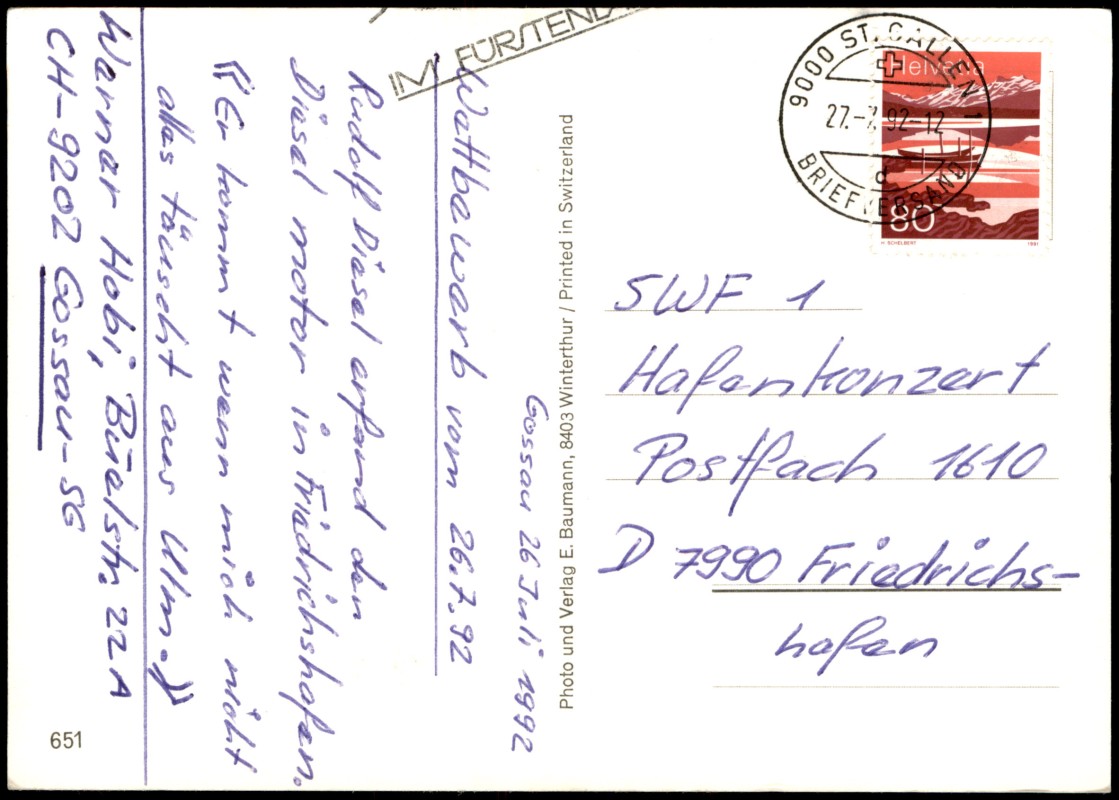 Gossau 26 Juli 1992
Wattbawarb vom 26.7.92
Rudolf Diesel erfand den
Diesel motor in Friedrichshafen.
«Er kommt wenn mich nicht
alles täuscht aus Ulm.»
Warnar Hobi, Büelstr. 22A
CH-9202 Gossau-SG
651
Photo und Verlag E. Baumann, 8403 Winterthur / Printed in Switzerland
IM FÜRSTENLA
9000 ST. GALLEN 1
27.-7.92-12
d
BRIEFVERSAND
Helvetia
80
H. SCHELBERT 1991
SWF 1
Hafenkonzert
Postfach 1610
D 7990 Friedrichs-
hafen